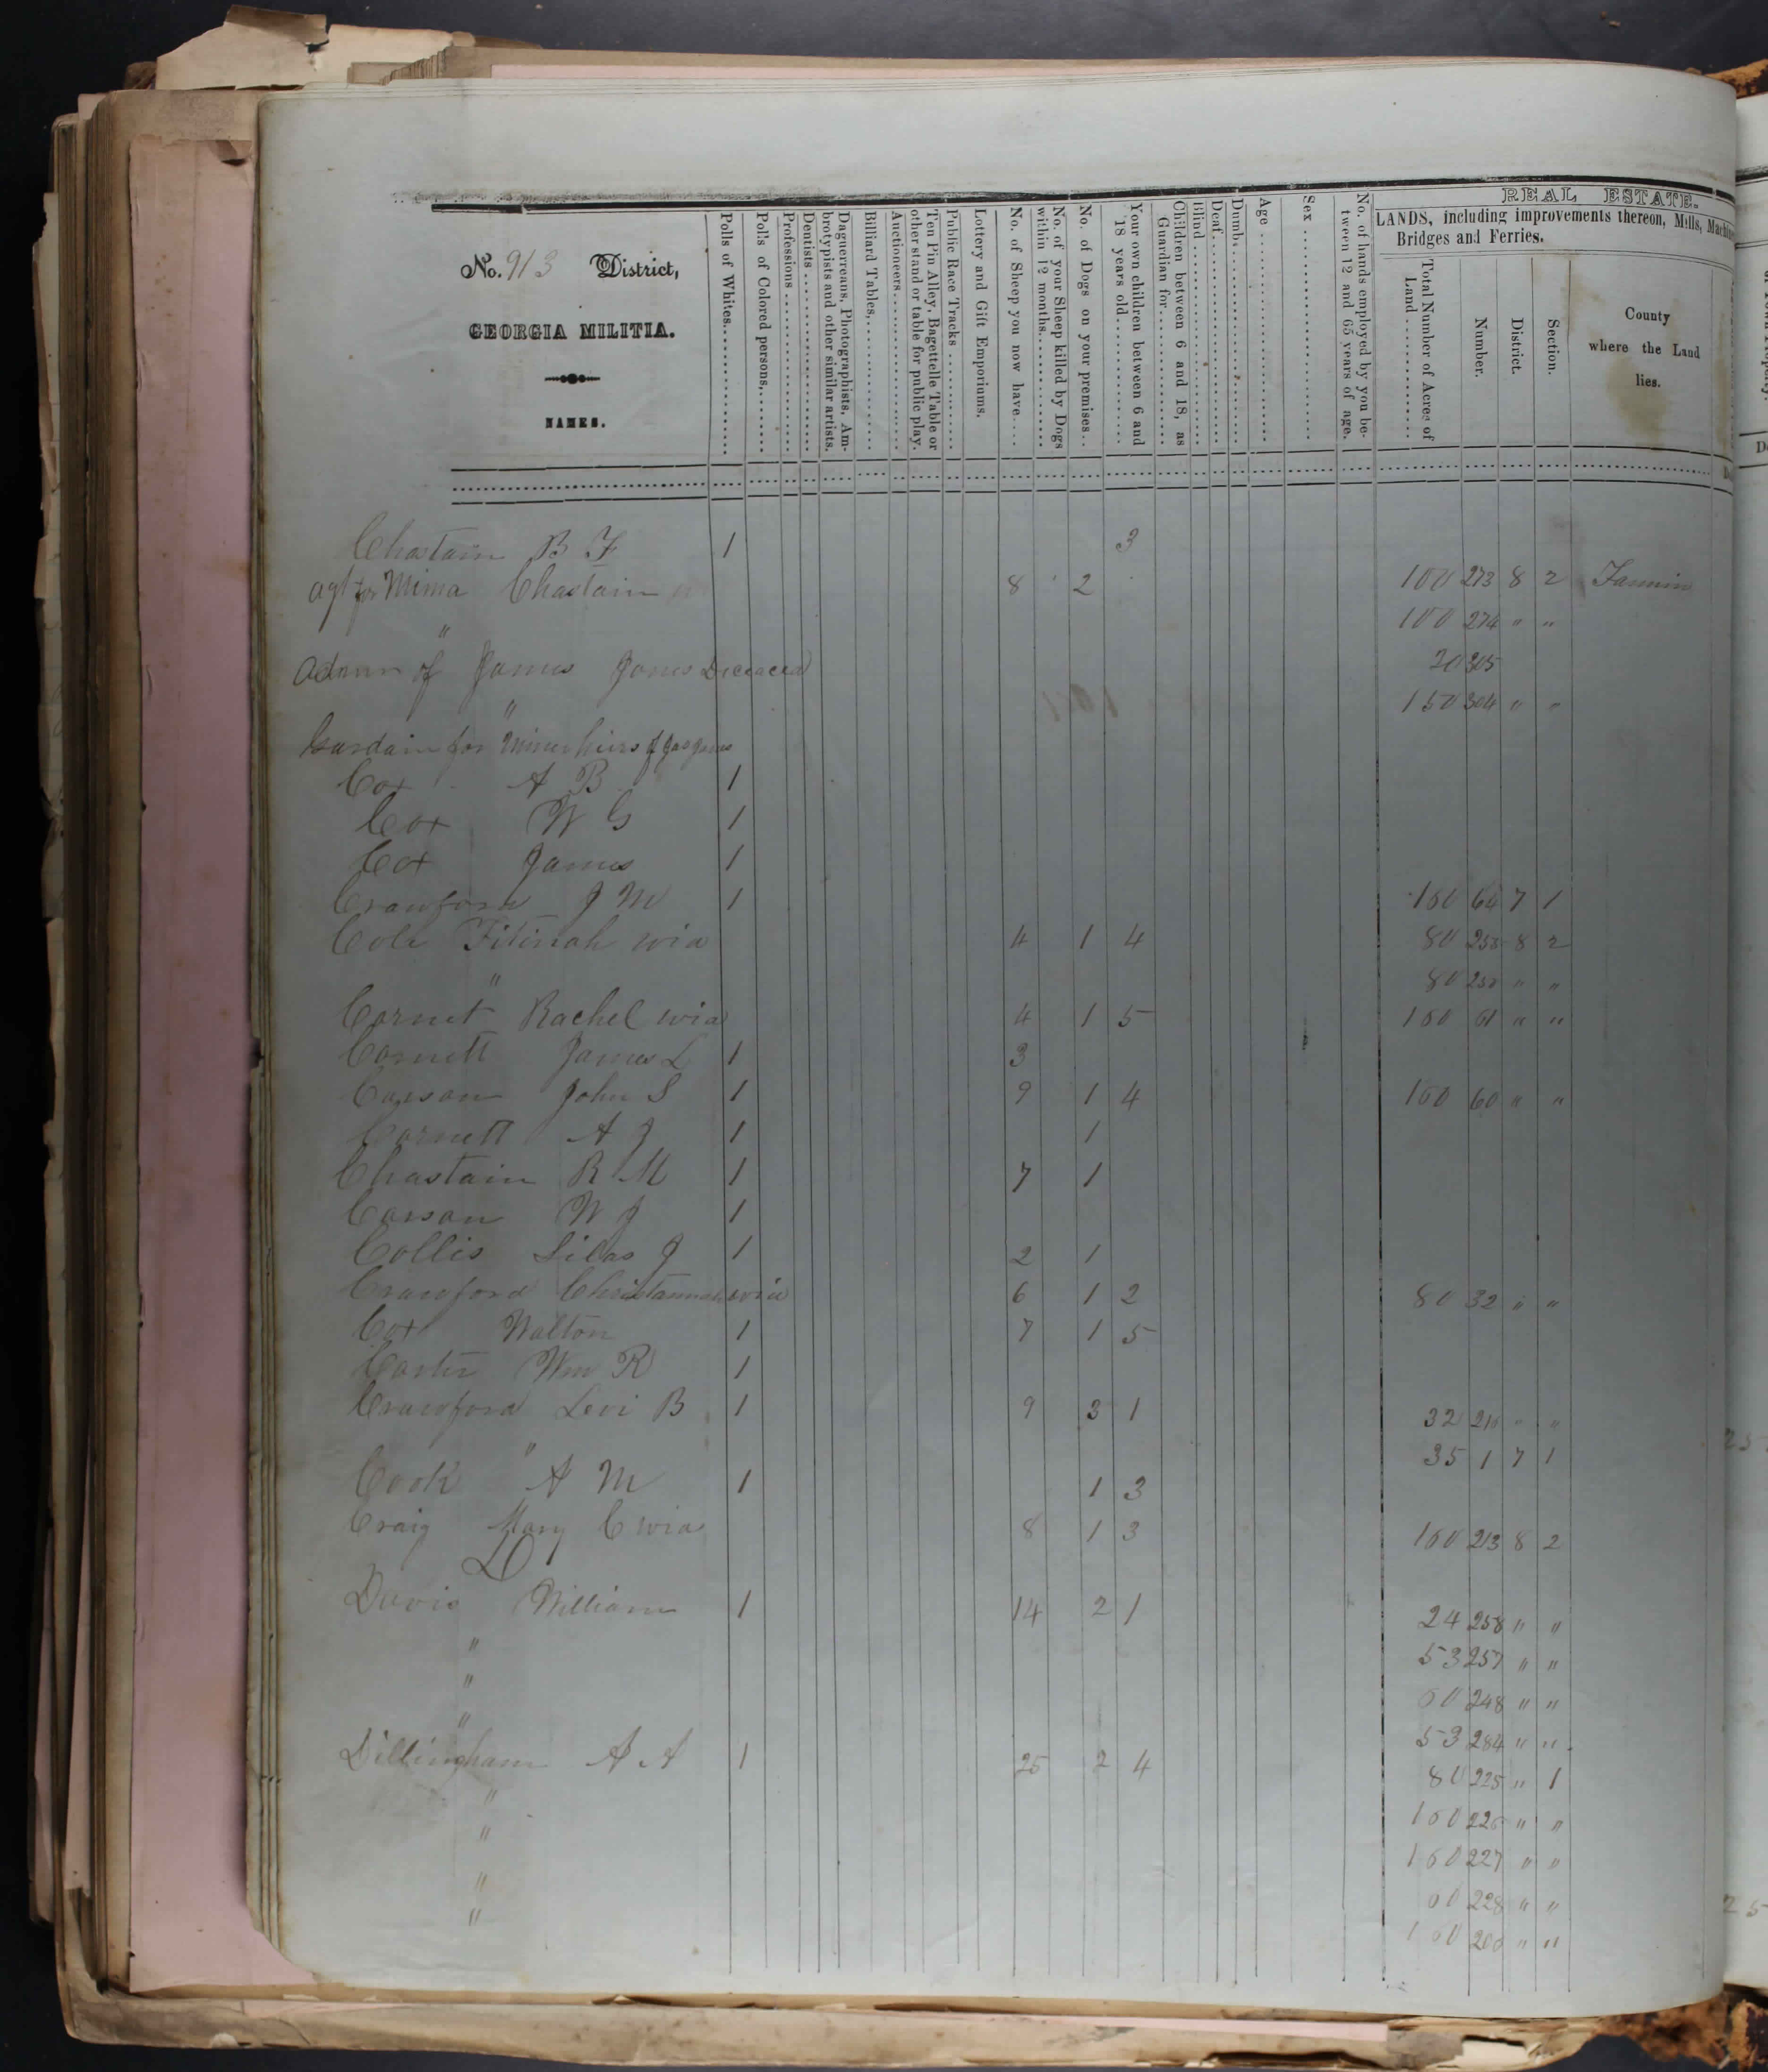 REAL ESTATE.
LANDS, including improvements thereon, Mills, Machine
Bridges and Ferries.
No. 913 District,
GEORGIA MILITIA.
NAMES.
Polls of Whites
Polls of Colored persons,
Professions
Dentists
Daguerreans, Photographists, Am-
brotypists and other similar artists.
Billiard Tables,
Auctioneers
Ten Pin Alley, Bagettelle Table or
other stand or table for public play.
Public Race Tracks
Lottery and Gift Emporiums.
No. of Sheep you now have
No. of your Sheep killed by Dogs
within 12 months
No. of Dogs on your premises
Your own children between 6 and
18 years old
Children between 6 and 18, as
Guardian for
Blind
Deaf
Dumb
Age
Sex
No. of hands employed by you be-
tween 12 and 65 years of age.
Total Number of Acres of
Land
Number.
District.
Section.
County
where the Land
lies.
Chastain B F 1 3
agt for Mima Chastain 8 2 100 273 8 2 Fannin
" 100 274 " "
Admr of James Jones Deceaced 20 305
" 150 304 " "
Gardain for Miner heirs of Jas Jones
Cox A B 1
Cox W G 1
Cox James 1
Crawford J M 1 160 64 7 1
Cole wid 4 1 4 80 258 8 2
" 80 " "
Cornet Rachel wid 4 1 5 160 61 " "
Cornett James L 1 3
Carson John S 1 9 1 4 160 60 " "
Cornett A J 1 1
Chastain R M 1 7 1
Carson W J 1
Collis Silas J 1 2 1
Crawford Christannah wid 6 1 2 80 32 " "
Cox Walton 1 7 1 5
Carter Wm R 1
Crawford Levi B 1 9 3 1 32 216 " "
" 35 1 7 1
Cook A M 1 1 3
Craig Mary C wid 8 1 3 160 213 8 2
D
Davis William 1 14 2 1 24 258 " "
" 53 257 " "
" 60 248 " "
" 53 284 " "
Dillingham A A 1 25 2 4 80 225 " 1
" 160 226 " "
" 160 227 " "
" 60 228 " "
" 160 " "